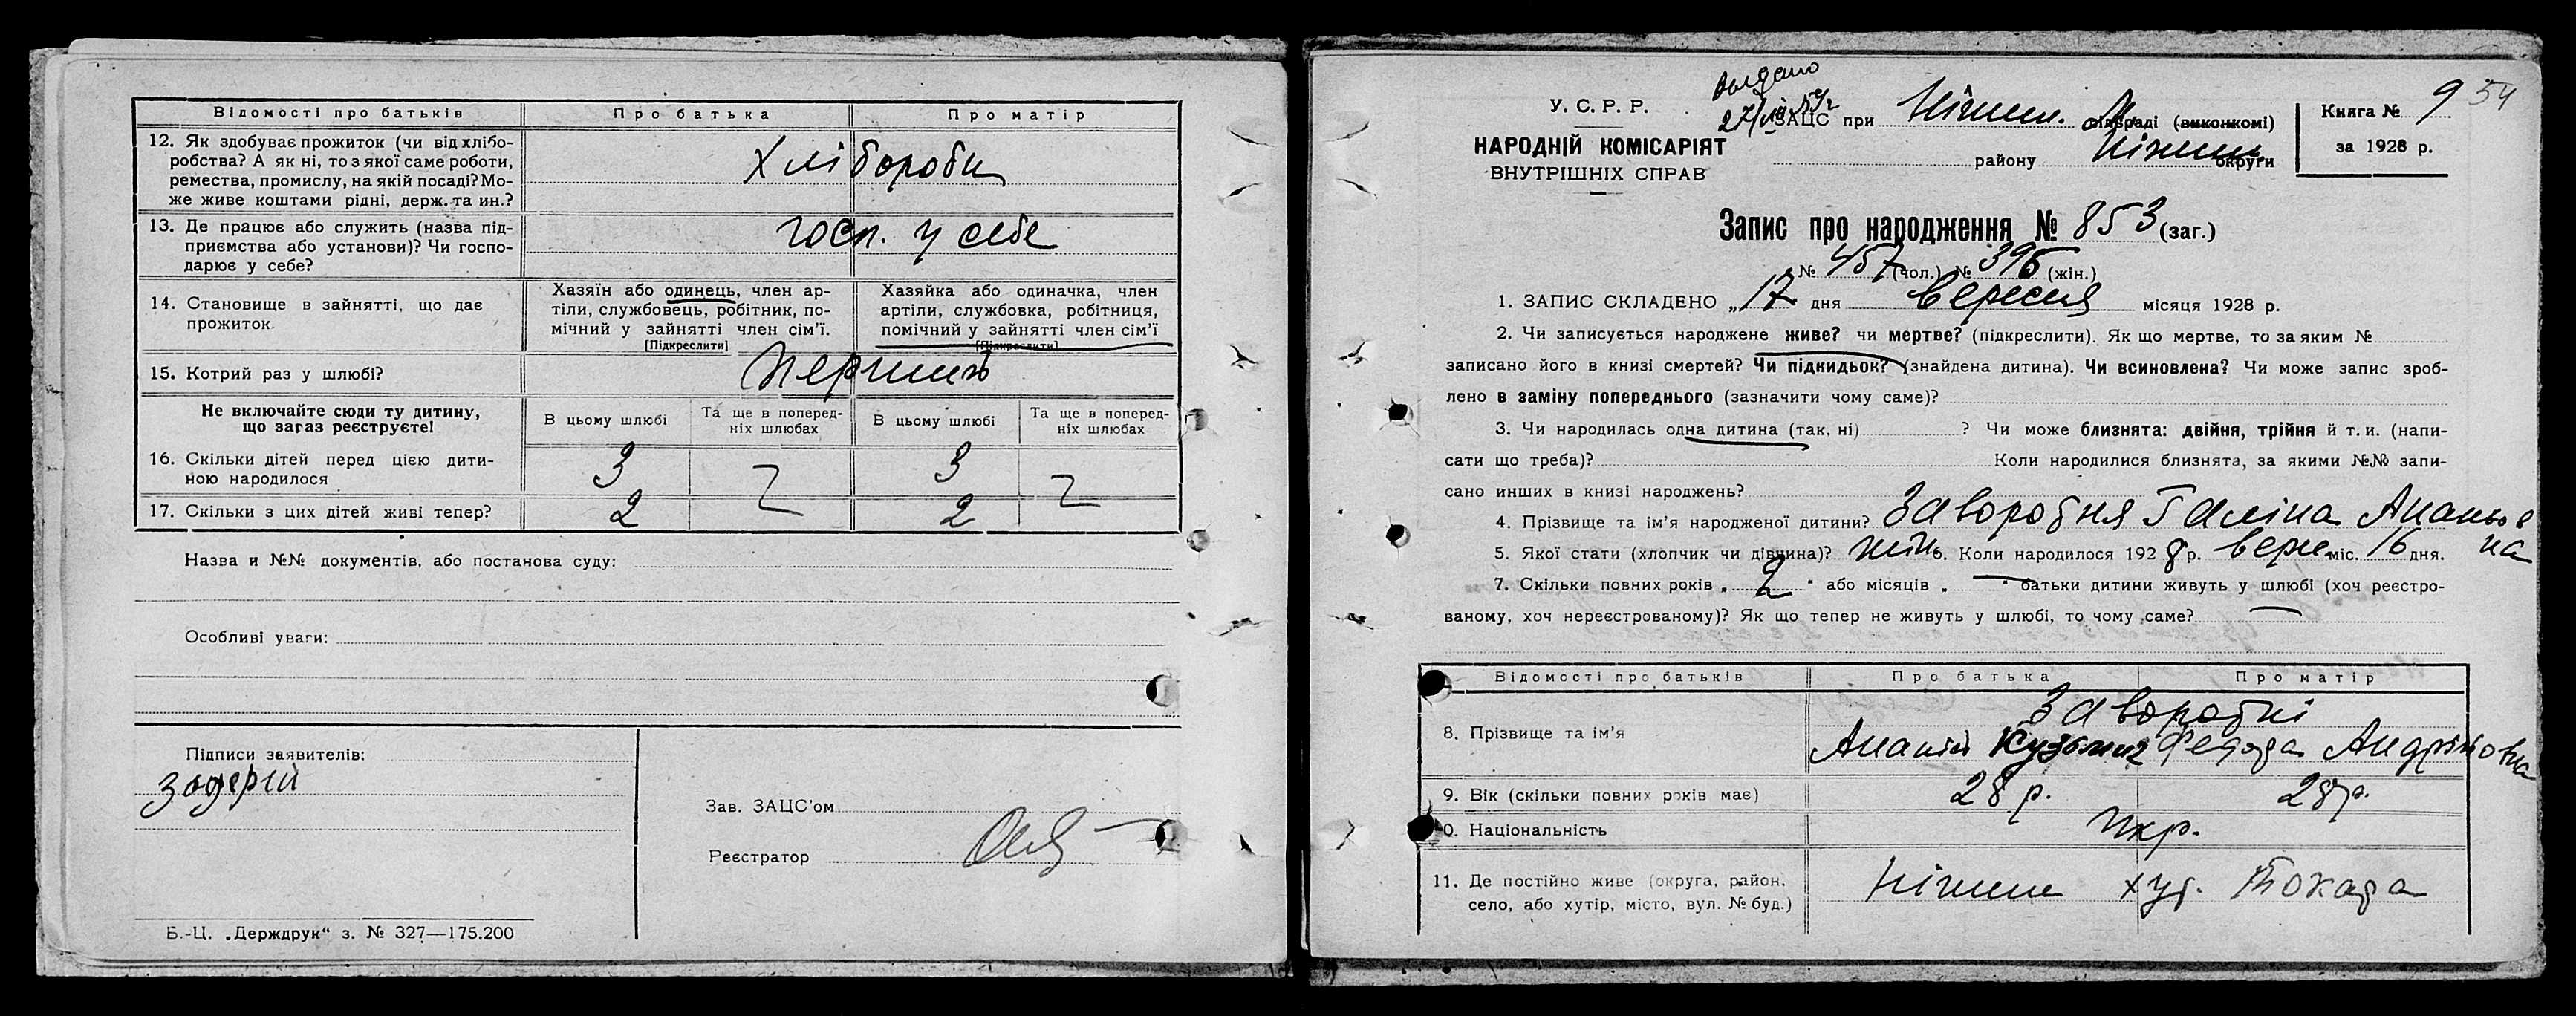 Відомості про батьків
Про батька
Про матір
12. Як здобуває прожиток (чи від хлібо-
робства? А як ні, то з якої саме роботи,
ремества, промислу, на якій посаді? Мо-
же живе коштами рідні, держ. та ин.?
Хлібороби
13. Де працює або служить (назва під-
приємства або установи)? Чи госпо-
дарює у себе?
госп. у себе
14. Становище в зайнятті, що дає
прожиток
Хазяїн або одинець, член ар-
тіли, службовець, робітник, по-
мічний у зайнятті член сім'ї.
[Підкреслити]
Хазяйка або одиначка, член
артіли, службовка, робітниця,
помічний у зайнятті член сім'ї
[Підкреслити]
15. Котрий раз у шлюбі?
Не включайте сюди ту дитину,
що зараз реєструєте!
В цьому шлюбі
Та ще в поперед-
ніх шлюбах
В цьому шлюбі
Та ще в поперед-
ніх шлюбах
16. Скільки дітей перед цією дити-
ною народилося
3
3
17. Скільки з цих дітей живі тепер?
2
2
Назва и №№ документів, або постанова суду:
Особливі уваги:
Підписи заявителів:
Зав. ЗАЦС'ом
Реєстратор
Б.-Ц. „Держдрук" з. № 327—175.200
У. С. Р. Р.
НАРОДНІЙ КОМІСАРІЯТ
ВНУТРІШНІХ СПРАВ
Выдано
ЗАЦС при Ніжин. раді (виконкомі)
району Ніжин. округи
Книга № 9
за 1928 р.
54
Запис про народження № 853 (заг.)
№ 457 (чол.) № 396 (жін.)
1. ЗАПИС СКЛАДЕНО „17 дня вересня місяця 1928 р.
2. Чи записується народжене живе? чи мертве? (підкреслити). Як що мертве, то за яким №
записано його в книзі смертей? Чи підкидьок? (знайдена дитина). Чи всиновлена? Чи може запис зроб-
лено в заміну попереднього (зазначити чому саме)?
3. Чи народилась одна дитина (так, ні) ? Чи може близнята: двійня, трійня й т. и. (напи-
сати що треба)? Коли народилися близнята, за якими №№ запи-
сано инших в книзі народжень?
4. Прізвище та ім'я народженої дитини? Заворотня Галіна Ананьєв
на
5. Якої стати (хлопчик чи дівчина)? жін. 6. Коли народилося 1928 р. верес міс. 16 дня.
7. Скільки повних років „ 2 " або місяців „ — " батьки дитини живуть у шлюбі (хоч реєстро-
ваному, хоч нереєстрованому)? Як що тепер не живуть у шлюбі, то чому саме? —
Відомості про батьків
Про батька
Про матір
8. Прізвище та ім'я
Заворотні
Ананій Кузьмич
Андріївна
9. Вік (скільки повних років має)
28 р.
28 р.
10. Національність
Укр.
11. Де постійно живе (округа, район,
село, або хутір, місто, вул. № буд.)
Ніжин хут.